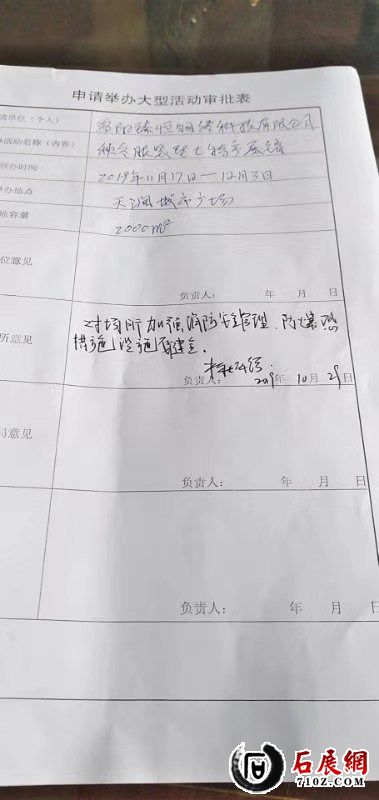 申请举办大型活动审批表
请单位(个人)
洛阳臻恒网络科技有限公司
办活动名称(内容)
秋冬服装暨土特产展销
举办时间
2019年11月17日—12月3日
举办地点
天润城市广场
地容量
2000m²
位意见
负责人: 年 月 日
所意见
对场所加强消防安全管理、防爆恐
措施设施要健全.
2019年10月29日
负责人:
局意见
负责人: 年 月 日
负责人: 年 月 日
石展網
www.71OZ.com